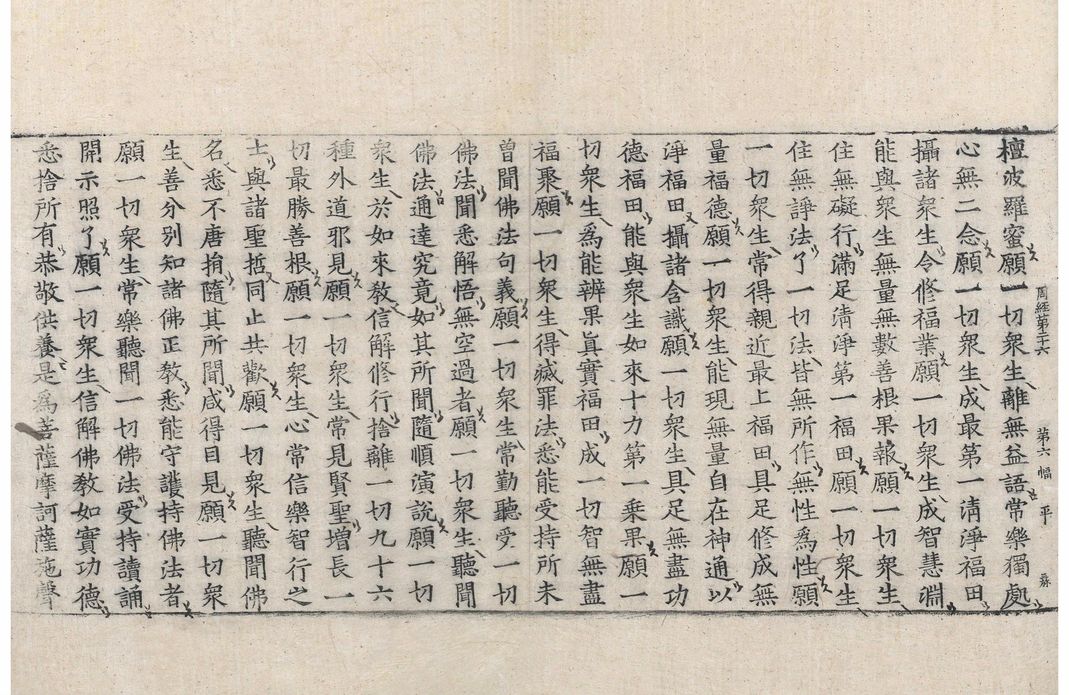 檀波羅蜜願一切衆生離無益語常樂獨處
周經第二十六 第六幅 平
心無二念願一切衆生成最第一清淨福田
攝諸衆生令修福業願一切衆生成智慧淵
能與衆生無量無數善根果報願一切衆生
住無礙行滿足清淨第一福田願一切衆生
住無諍法了一切法皆無所作無性爲性願
一切衆生常得親近最上福田具足修成無
量福德願一切衆生能現無量自在神通以
淨福田攝諸含識願一切衆生具足無盡功
德福田能與衆生如來十力第一乗果願一
切衆生爲能辨果眞實福田成一切智無盡
福聚願一切衆生得滅罪法悉能受持所未
曽聞佛法句義願一切衆生常勤聽受一切
佛法聞悉解悟無空過者願一切衆生聽聞
佛法通達究竟如其所聞隨順演說願一切
衆生於如來教信解修行捨離一切九十六
種外道邪見願一切衆生常見賢聖增長一
切最勝善根願一切衆生心常信樂智行之
士與諸聖哲同止共歡願一切衆生聽聞佛
名悉不唐捐隨其所聞咸得目見願一切衆
生善分別知諸佛正教悉能守護持佛法者
願一切衆生常樂聽聞一切佛法受持讀誦
開示照了願一切衆生信解佛教如實功德
悉捨所有恭敬供養是爲菩薩摩訶薩施聲